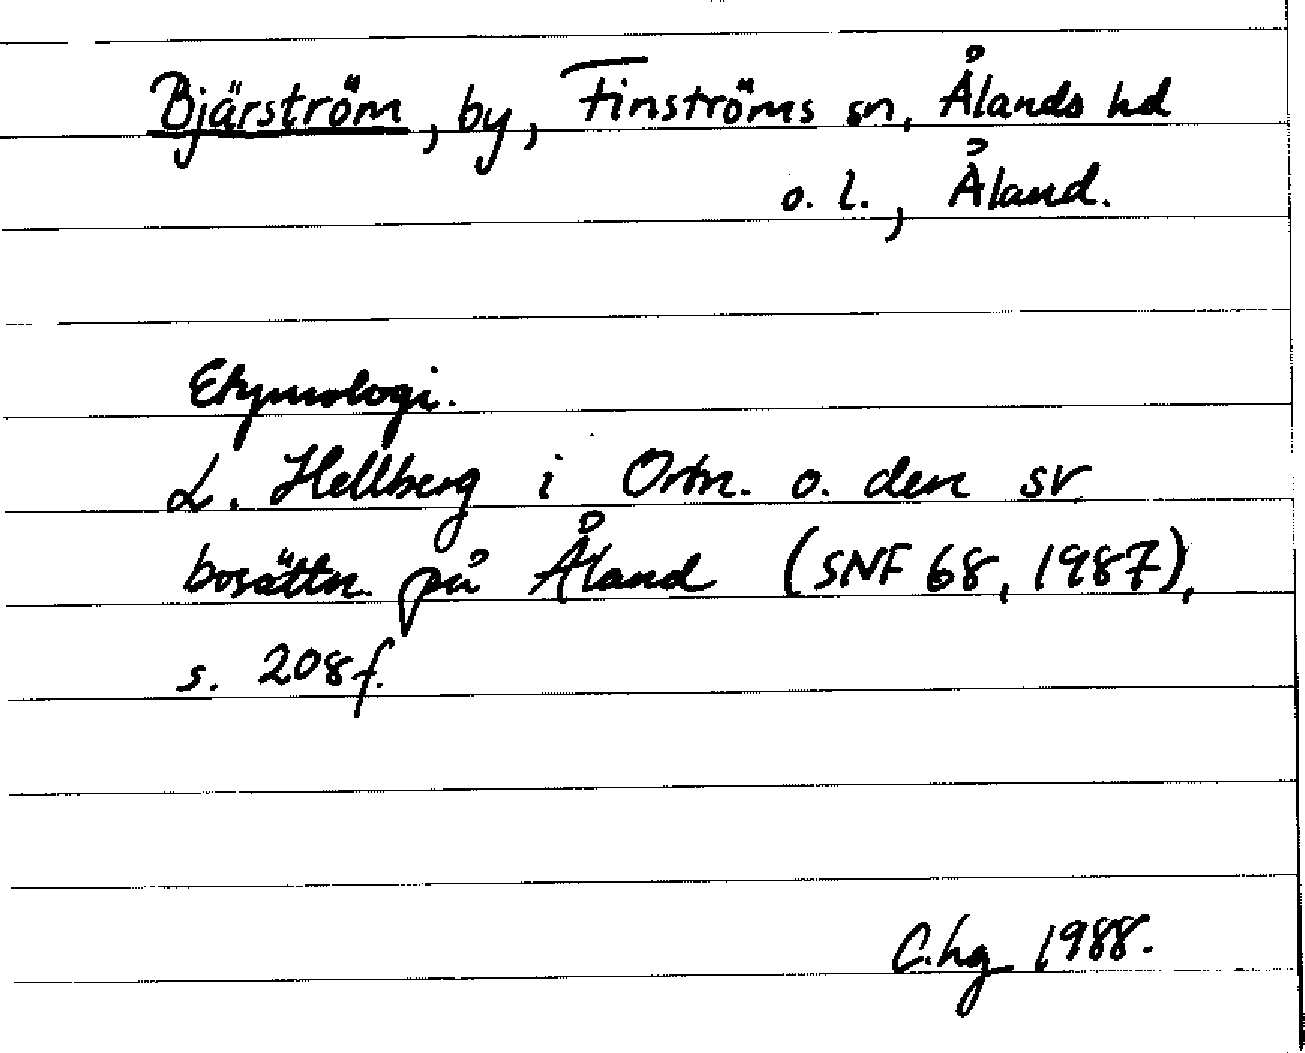 Bjärström, by, Finströms sn, Ålands hd
o. l., Åland.
Etymologi.
L. Hellberg i Ortn. o. den sv.
bosättn. på Åland (SNF 68, 1987),
s. 208f.
C.hg 1988.